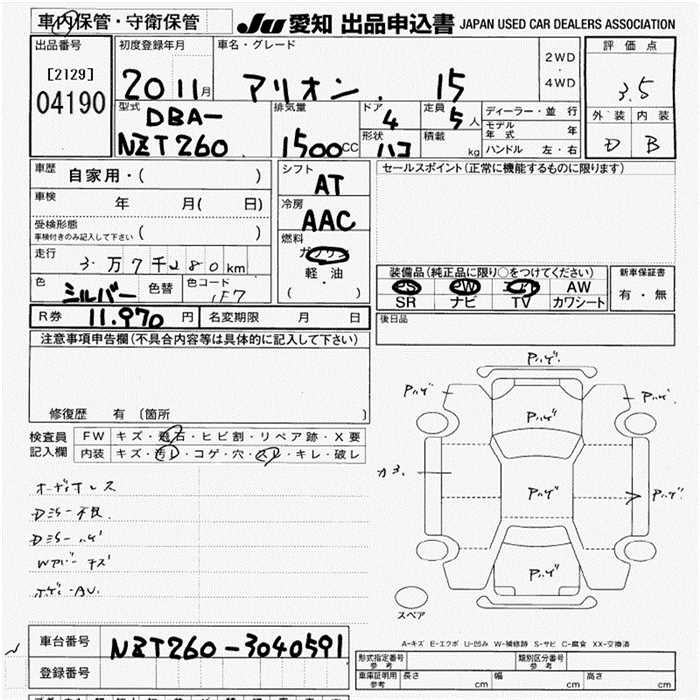 車内保管・守衛保管
JU 愛知 出品申込書 JAPAN USED CAR DEALERS ASSOCIATION
出品番号
[2129]
04190
初度登録年月
20 11 月
車名・グレード
アリオン 15
2WD
・
4WD
評価点
3.5
外装 内装
D B
型式
DBA-
NZT260
排気量
1500CC
ドア
4
形状
ハコ
定員
5人
積載
kg
ディーラー・並行
モデル年式 年
ハンドル 左・右
車歴
自家用・( )
車検
年 月( 日)
受検形態
車検付きのみ記入して下さい ( )
走行
3万7千280km
色
シルバー
色替
色コード
1F7
シフト
AT
冷房
AAC
燃料
ガソリン
軽油
・
( )
セールスポイント(正常に機能するものに限ります)
装備品(純正品に限り○をつけてください)
PS PW エアB AW
SR ナビ TV カワシート
新車保証書
有・無
R券 11.970 円 名変期限 月 日
後日品
注意事項申告欄(不具合内容等は具体的に記入して下さい)
修復歴 有 〔箇所 〕
検査員
記入欄
FW キズ・飛石・ヒビ割・リペア跡・X要
内装 キズ・汚レ・コゲ・穴・スレ・キレ・破レ
オーディオレス
Dミラー不良
Dミラーハゲ
Wカバーキズ
Pハゲ
Pハゲ
Pハゲ
Pハゲ
カヨ
Pハゲ
Pハゲ
Pハゲ
スペア
A-キズ E-エクボ U-凹み W-補修跡 S-サビ C-腐食 XX-交換済
車台番号 NZT260-3040591
登録番号
形式指定番号
参考
類別区分番号
参考
車庫証明用
参考
長さ cm 幅 cm 高さ cm